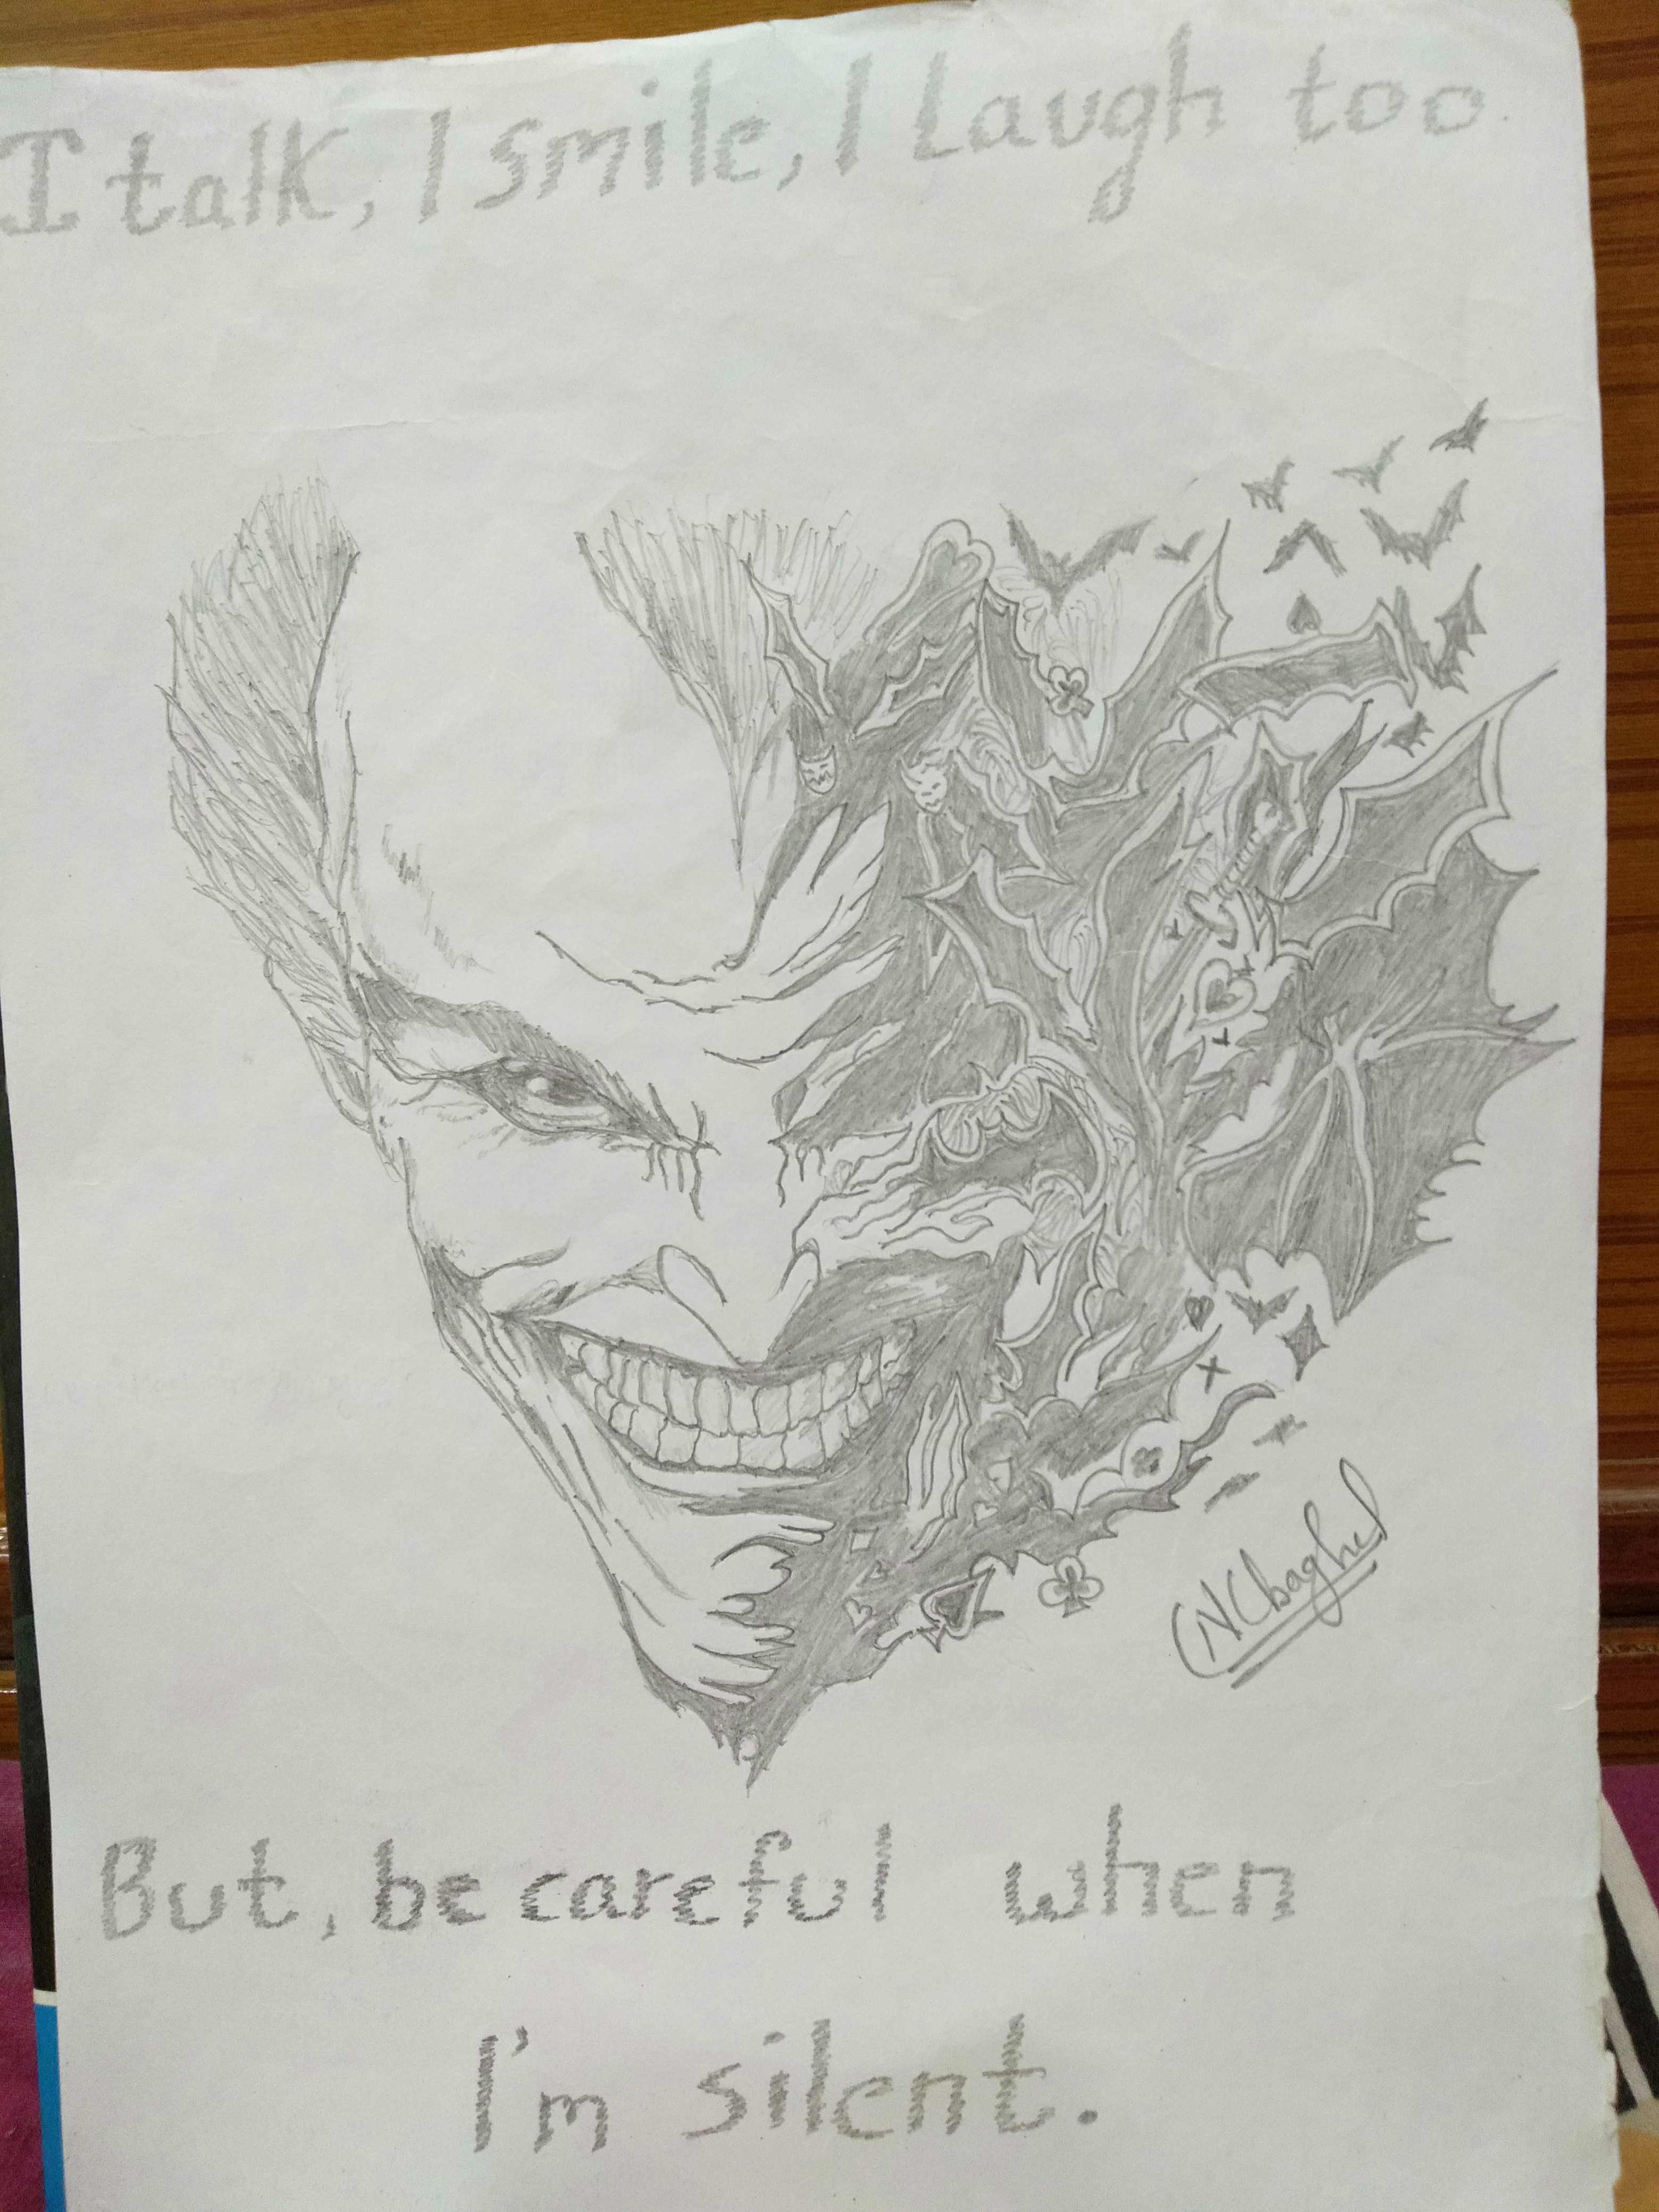 I talk, I smile, I Laugh too
NCbaghel
But, be careful when
I'm silent.